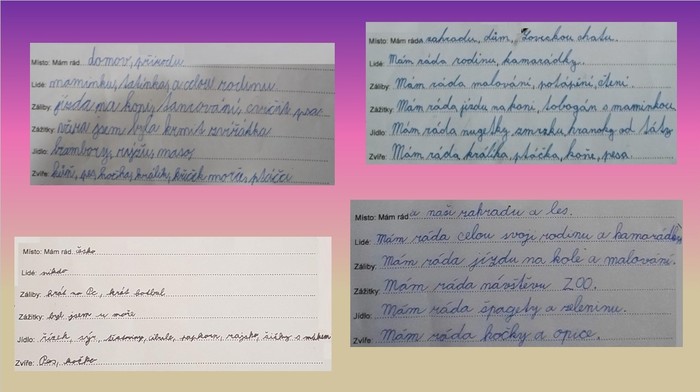 Místo: Mám rád domov, přírodu
Lidé: maminku, tatínka a celou rodinu
Záliby: jízda na koni, tancování, cvičit psa
Zážitky: včera jsem byla krmit zvířátka
Jídlo: brambory, rýžu, maso
Zvíře: kůň, pes, kočka, králík, křeček, morče, ptáča
Místo: Mám ráda zahradu, dům, chatu.
Lidé: Mám ráda rodinu, kamarádky.
Záliby: Mám ráda malování, potápění, čtení.
Zážitky: Mám ráda jízdu na koni, tobogán s maminkou
Jídlo: Mám ráda nugetky, zmrzku, hranolky od táty
Zvíře: Mám ráda králíka, ptáčka, koně, psa.
Místo: Mám rád
Lidé: nikdo
Záliby: hrát na Pc, hrát fotbal
Zážitky: byl jsem u moře
Jídlo: řízek, sýr, cibule, popkorn, rajsko, šišky s mákem
Zvíře: Pes, kočka
Místo: Mám ráda naši zahradu a les.
Lidé: Mám ráda celou svoji rodinu a kamarádky
Záliby: Mám ráda jízdu na kole a malování.
Zážitky: Mám ráda návštěvu ZOO.
Jídlo: Mám ráda špagety a zeleninu.
Zvíře: Mám ráda kočky a opice.